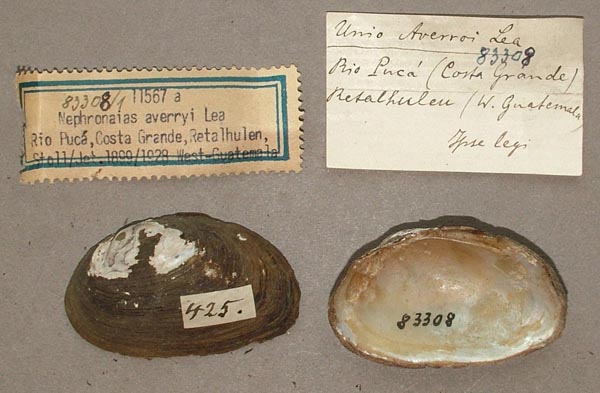 83308/1 11567 a
Nephronaias averryi Lea
Rio Pucá, Costa Grande, Retalhulen,
Stoll/Jel. 1899/1928 West-Guatemala
Unio Averroi Lea
83308
Rio Pucá (Costa Grande)
Retalhuleu (W. Guatemala)
Ipse legi
425.
83308